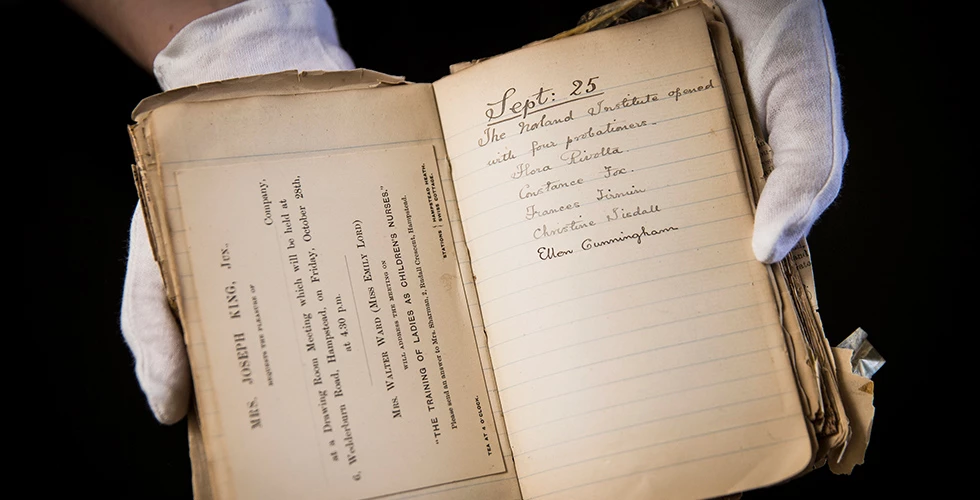 MRS. JOSEPH KING, JUN.,
REQUESTS THE PLEASURE OF
Company,
at a Drawing Room Meeting which will be held at
6, Wedderburn Road, Hampstead, on Friday, October 28th,
at 4.30 p.m.
MRS. WALTER WARD (MISS EMILY LORD)
WILL ADDRESS THE MEETING ON
"THE TRAINING OF LADIES AS CHILDREN'S NURSES."
Please send an answer to Mrs. Sharman, 7, Rudall Crescent, Hampstead.
STATIONS { HAMPSTEAD HEATH.
SWISS COTTAGE.
TEA AT 4 O'CLOCK.
Sept: 25
The Norland Institute opened
with four probationers.
Flora Rivolta.
Constance Fox.
Frances Firmin
Christine Tisdall
Ellen Cunningham